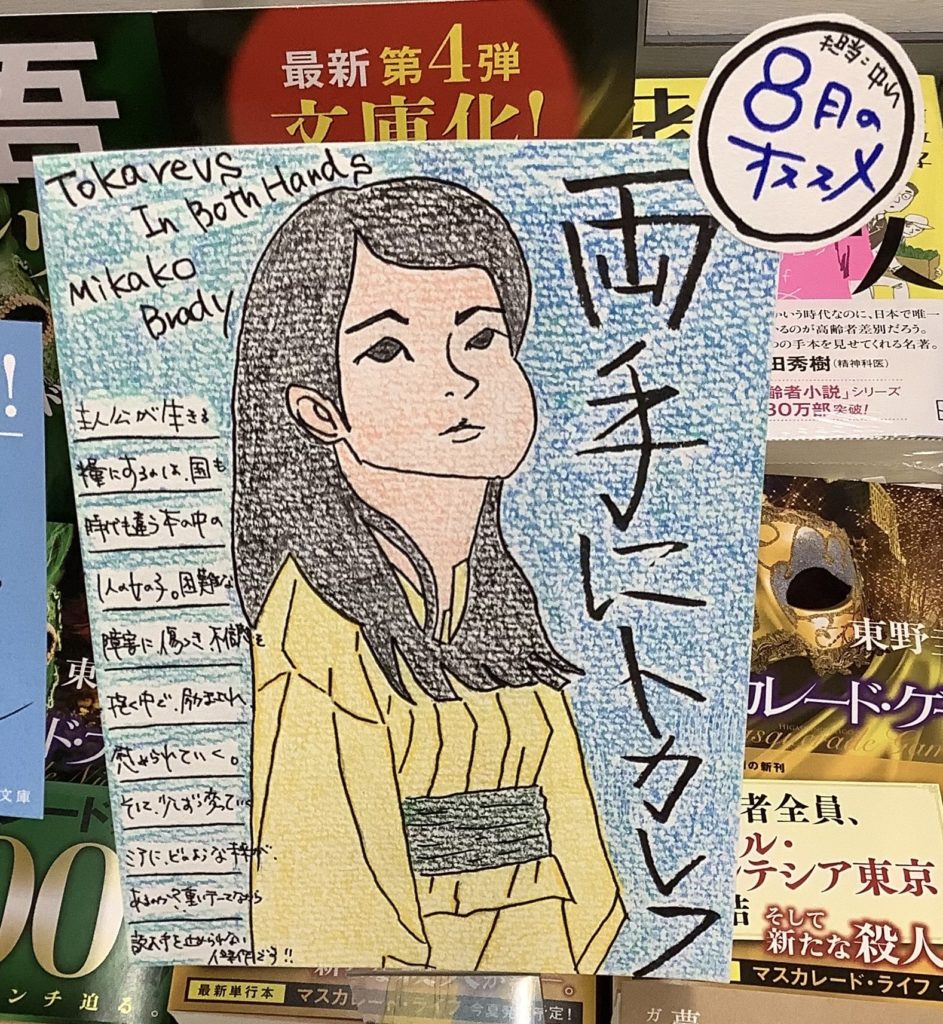 吾
最新 第4弾
文庫化!
担当:中山
8月の
オススメ
Tokarevs
In Both Hands
Mikako
Brady
両手にトカレフ
主人公が生きる
糧にするのは、国も
時代も違う本の中の
1人の女の子。困難な
障害に傷つき 不信感を
抱く中で、励まされ
慰められていく。
そして、少しずつ変っていく
ミアに、どのような未来が
あるのか?重いテーマながら
読む手を止められない
1冊だぞう!!
いう時代なのに、日本で唯一
るのが高齢者差別だろう。
つの手本を見せてくれる名著。
田秀樹(精神科医)
齢者小説」シリーズ
30万部突破!
東野圭
カレード・ゲ
の新刊
者全員、
ル・
ンテシア東京
結
そして
新たな殺人
マスカレード・ライフ 今
文庫
ンチ迫る。
最新単行本 マスカレード・ライフ 今夏発売予定!